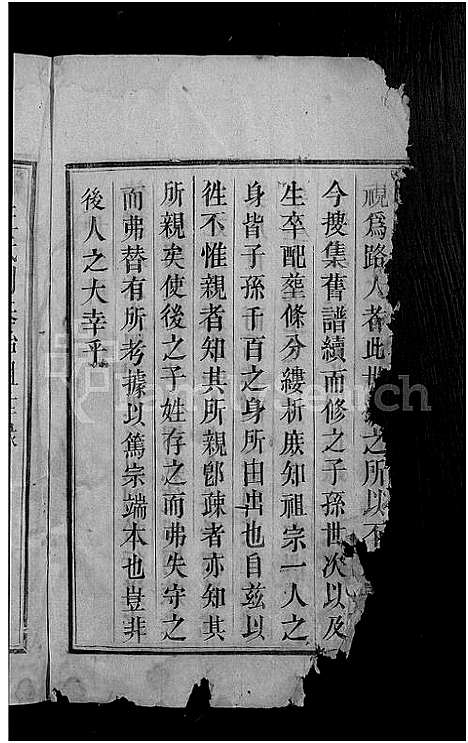 視為路人者此世系之所以不
今搜集舊譜續而修之子孫世次以及
生卒配塟條分縷析庻知祖宗一人之
身皆子孫千百之身所由出也自兹以
徃不惟親者知其所親卽疎者亦知其
所親矣使後之子姓存之而弗失守之
而弗替有所考據以篤宗端本也豈非
後人之大幸乎